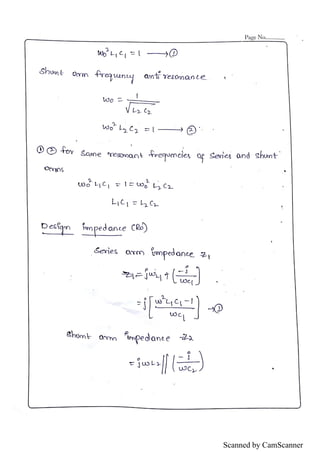 Page No..............
ω₀² L₁ C₁ = 1 ⟶ ①
Shunt arm frequency anti resonance.
ω₀ = 1 / √(L₂ C₂)
ω₀² L₂ C₂ = 1 ⟶ ②
① ② for same resonant frequencies of Series and Shunt
arms
ω₀² L₁ C₁ = 1 = ω₀² L₂ C₂
L₁ C₁ = L₂ C₂
Design impedance (R₀)
Series arm impedance z₁
z₁ = jωL₁ + (-j / ωC₁)
= j [ (ω² L₁ C₁ - 1) / ωC₁ ] → ③
Shunt arm impedance z₂
= jωL₂ || (-j / ωC₂)
Scanned by CamScanner